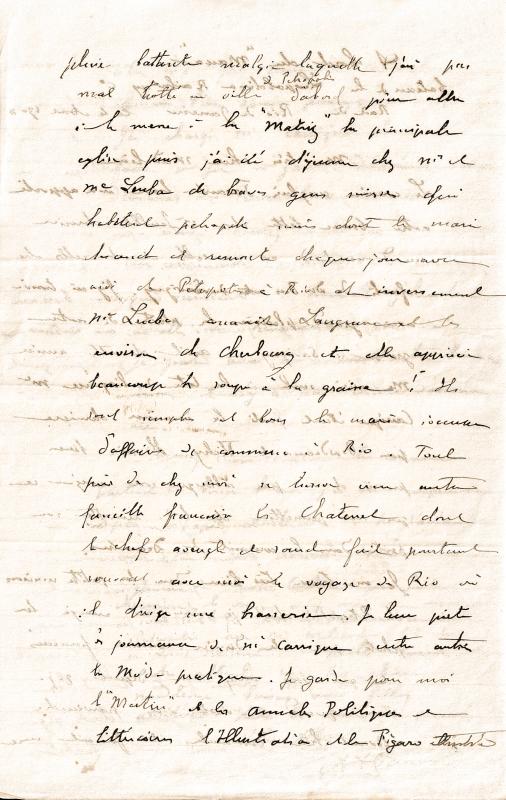 pluie battante malgré laquelle j'ai pas
mal trotté en ville à Petropolis d'abord pour aller
à la messe à la "Matriz" la principale
église puis j'ai été déjeuner chez Mr et
Me Leuba de braves gens suisses qui
habitent mais dont le mari
descend et remonte chaque jour avec
moi de Petropolis à Rio et inversement
Me Leuba connait et les
environs de Cherbourg et elle apprécie
beaucoup la soupe à la graisse! Ils
sont simples et bons le mari s'occupe
d'affaires de commerce à Rio. Tout
près de chez moi se trouve une autre
famille française les Chatenet dont
le chef aveugle et sourd fait pourtant
souvent avec moi le voyage de Rio où
il dirige une brasserie. Je leur prête
les journaux de Carrique entre autres
la Mode pratique. Je garde pour moi
l'"Matin" et les annales Politiques et
Littéraires l'Illustration et le Figaro illustré